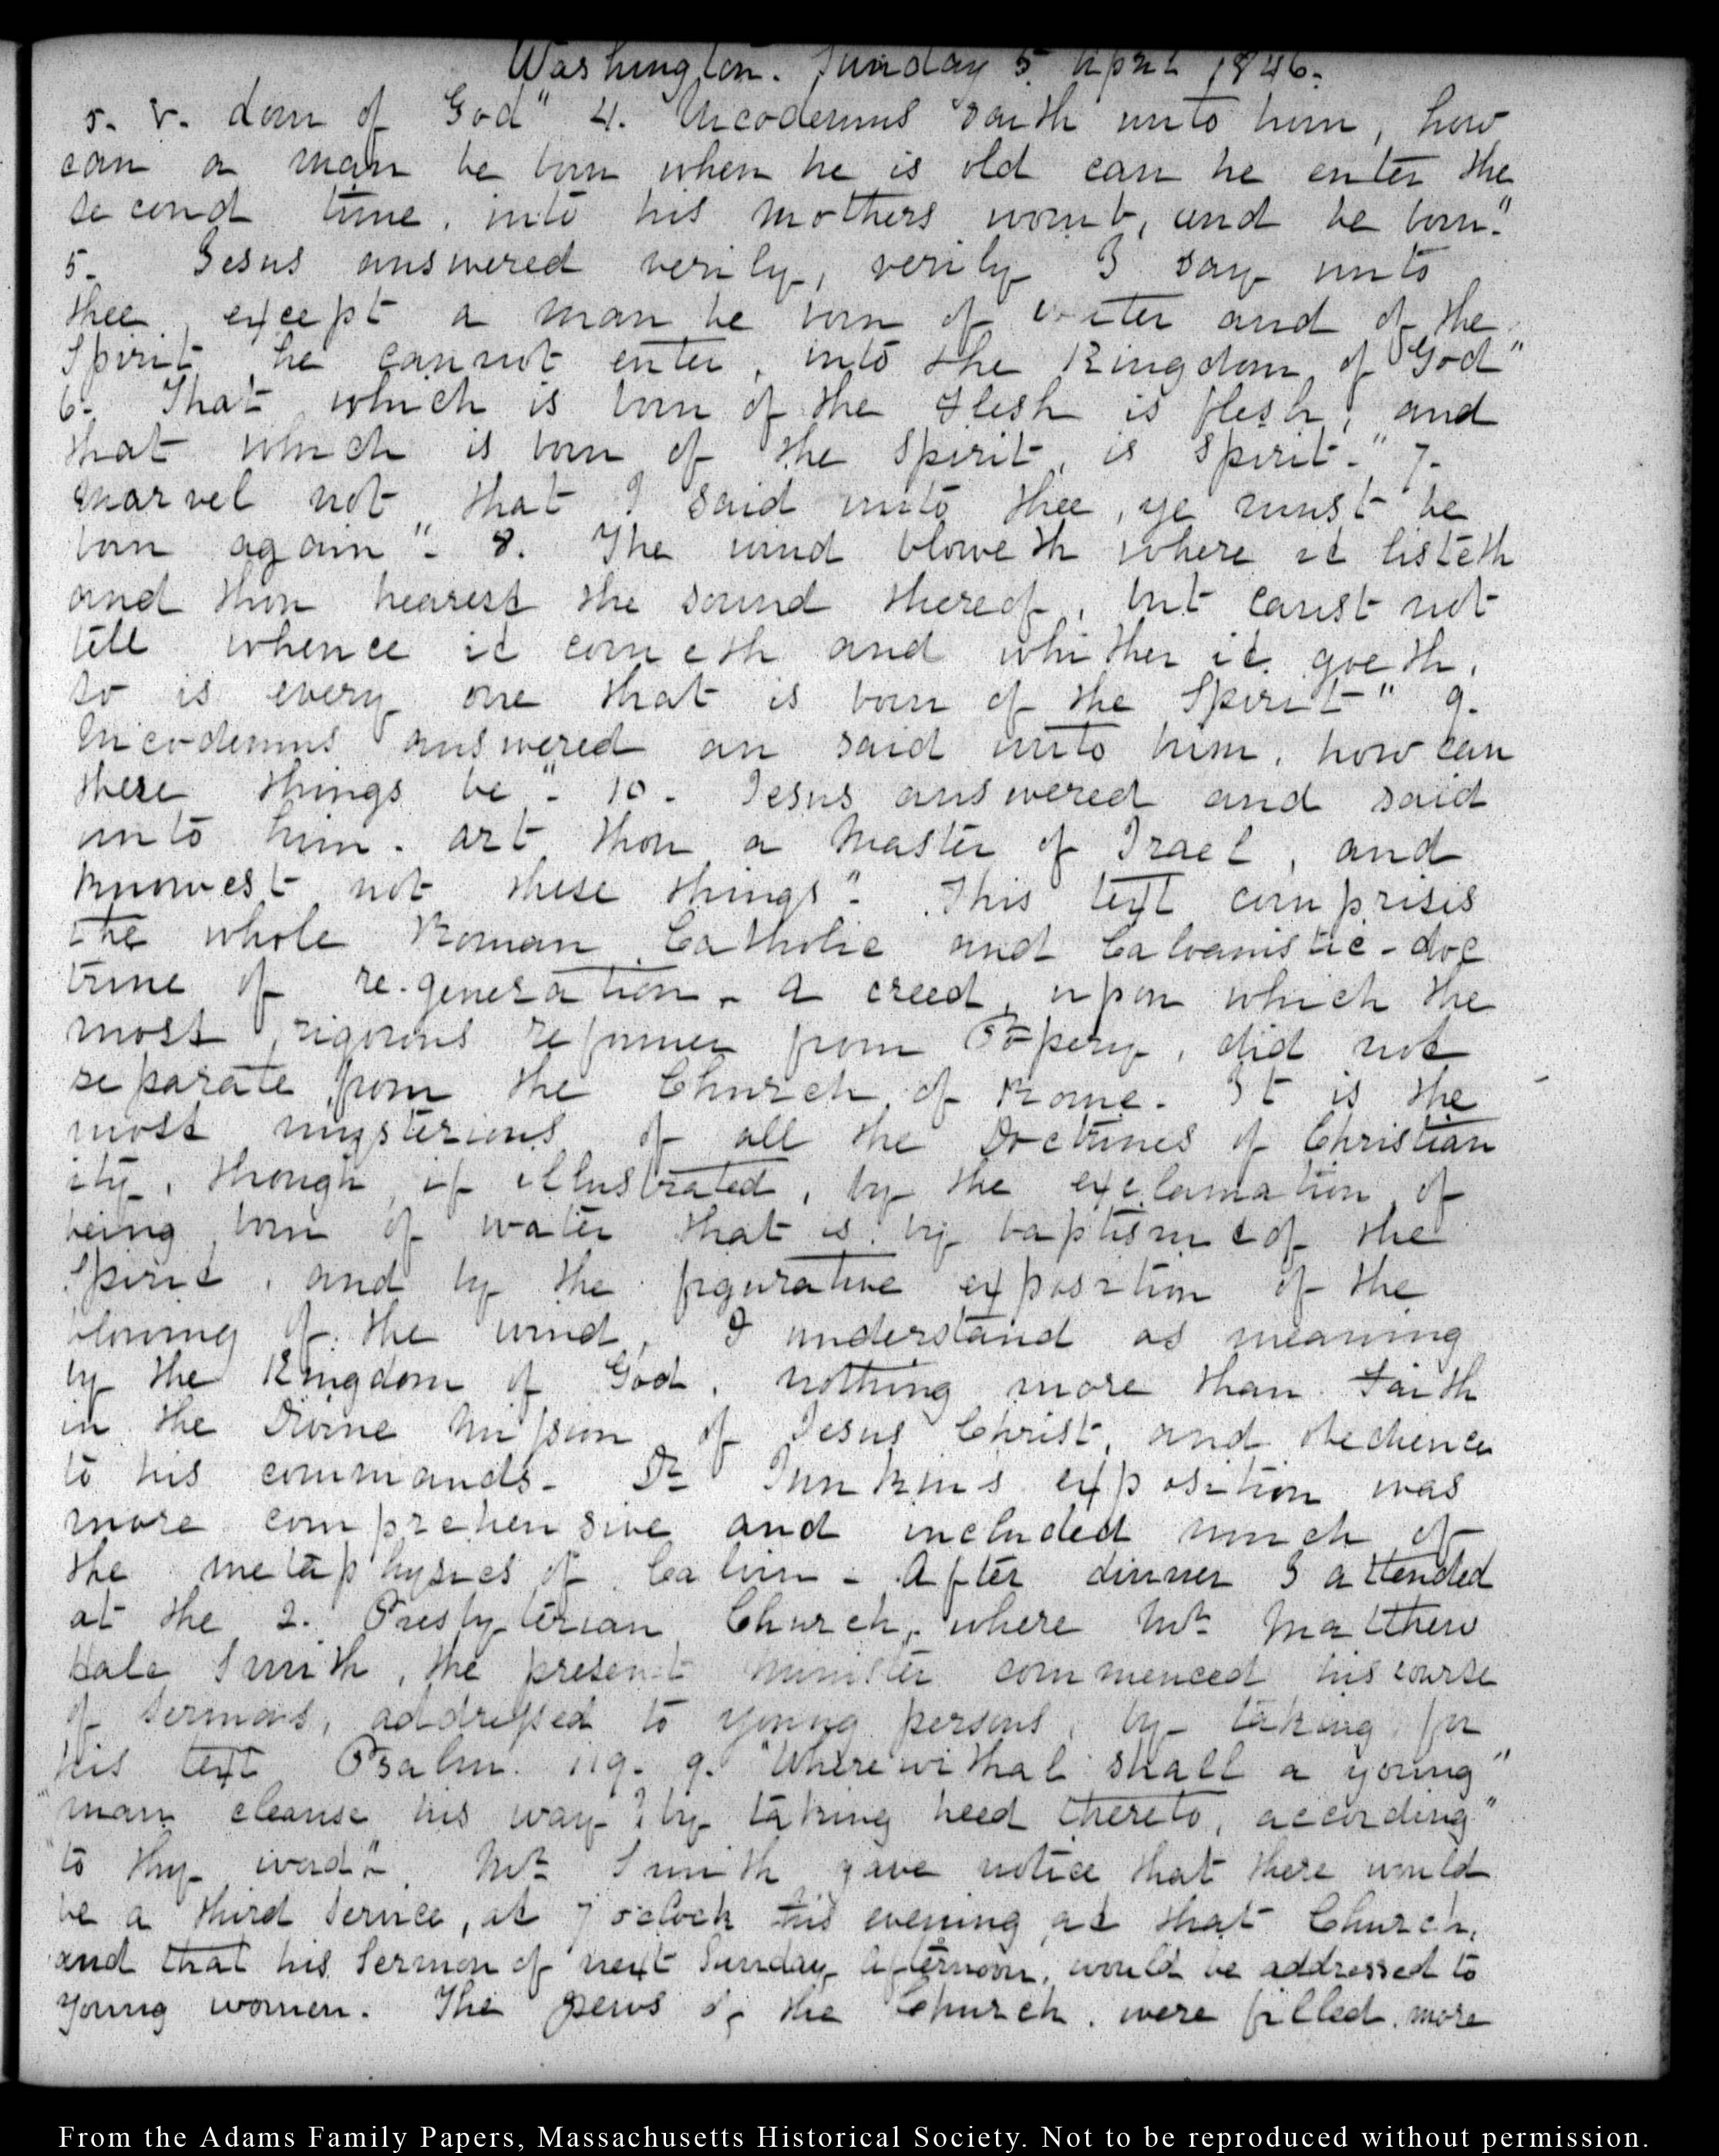 Washington. Sunday 5 April 1846.
5. V. dom of God" 4. Nicodemus saith unto him, how
can a man be born when he is old can he enter the
second time, into his mothers womb, and be born."
5. Jesus answered verily, verily I say unto
thee, except a man be born of water and of the
Spirit he cannot enter, into the Kingdom of God"
6. That which is born of the flesh is flesh, and
that which is born of the Spirit, is Spirit." 7.
marvel not that I said unto thee, ye must be
born again". 8. The wind bloweth where it listeth
and thou hearest the sound thereof, but canst not
tell whence it cometh and whither it goeth,
so is every one that is born of the Spirit" 9.
Nicodemus answered an said unto him, how can
these things be". 10. Jesus answered and said
unto him. art thou a Master of Israel, and
knowest not these things". This text comprises
the whole Roman Catholic and Calvanistic-doc
trine of re-generation. a creed, upon which the
most rigorous reformer from Popery, did not
separate from the Church of Rome. It is the
most mysterious of all the Doctrines of Christian
ity, though if illustrated, by the exclamation of
being born of water that is by baptism & of the
Spirit, and by the figurative exposition of the
blowing of the wind, I understand as meaning
by the Kingdom of God, nothing more than Faith
in the Divine Mission of Jesus Christ, and obedience
to his commands. Dr Junkins exposition was
more comprehensive and included much of
the metaphysics of Calvin. After dinner I attended
at the 2. Presbyterian Church, where Mr. Matthew
Hale Smith, the present minister commenced his course
of Sermons, addressed to young persons, by taking for
his text Psalm. 119. 9. "Wherewithal shall a young"
"man cleanse his way? by taking heed thereto, according"
"to thy word". Mr. Smith gave notice that there would
be a third Service, at 7 o'clock this evening at that Church,
and that his Sermon of next Sunday afternoon, would be addressed to
young women. The pews of the Church, were filled, more
From the Adams Family Papers, Massachusetts Historical Society. Not to be reproduced without permission.